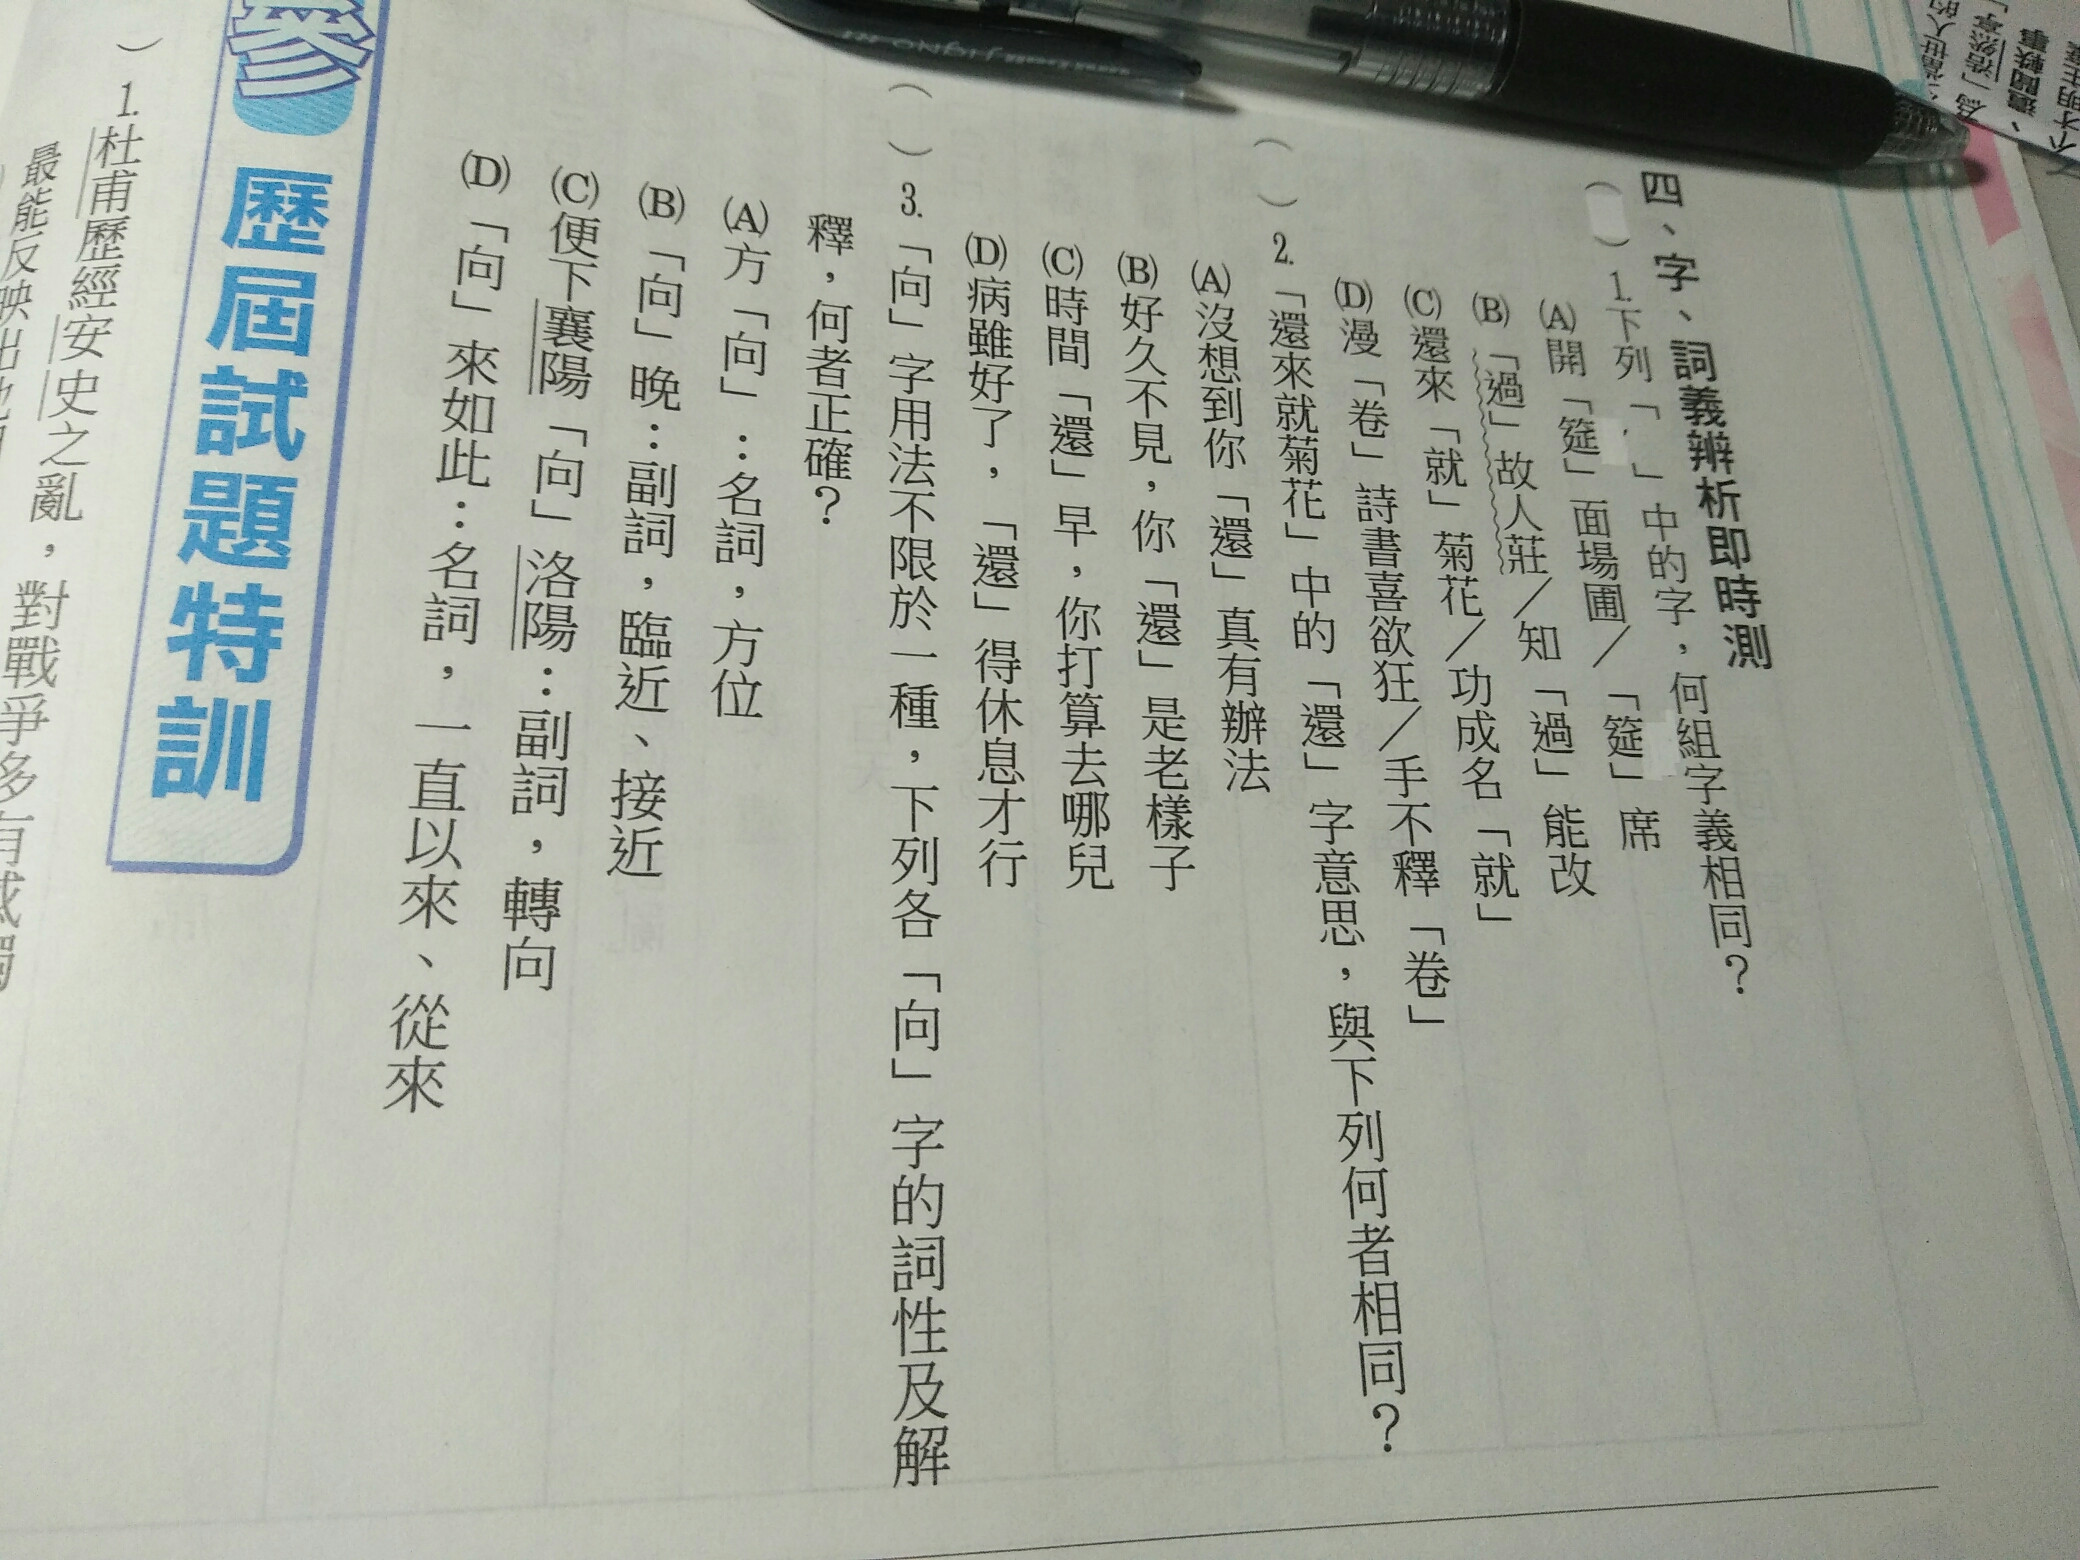 四、字、詞義辨析即時測
( )1.下列「 」中的字,何組字義相同?
(A)開「筵」面場圃/「筵」席
(B)「過」故人莊/知「過」能改
(C)還來「就」菊花/功成名「就」
(D)漫「卷」詩書喜欲狂/手不釋「卷」
( )2.「還來就菊花」中的「還」字意思,與下列何者相同?
(A)沒想到你「還」真有辦法
(B)好久不見,你「還」是老樣子
(C)時間「還」早,你打算去哪兒
(D)病雖好了,「還」得休息才行
( )3.「向」字用法不限於一種,下列各「向」字的詞性及解
釋,何者正確?
(A)方「向」:名詞,方位
(B)「向」晚:副詞,臨近、接近
(C)便下襄陽「向」洛陽:副詞,轉向
(D)「向」來如此:名詞,一直以來、從來
參 歷屆試題特訓
)1.杜甫歷經安史之亂,對戰爭多有感觸
最能反映出他